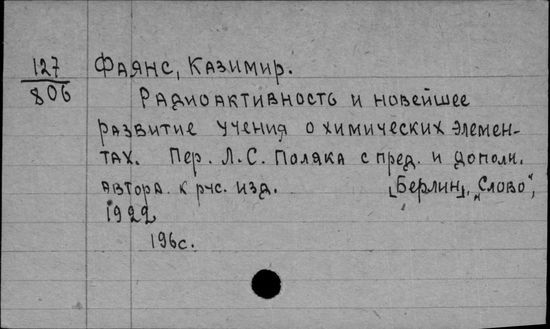 127
806
Фаянс, Казимир.
Радиоактивность и новейшее
развитие учения о химических элемен-
тах. Пер. Л.С. Поляка с пред. и дополн.
автора к рус. изд. [Берлин], „Слово",
1922
196с.